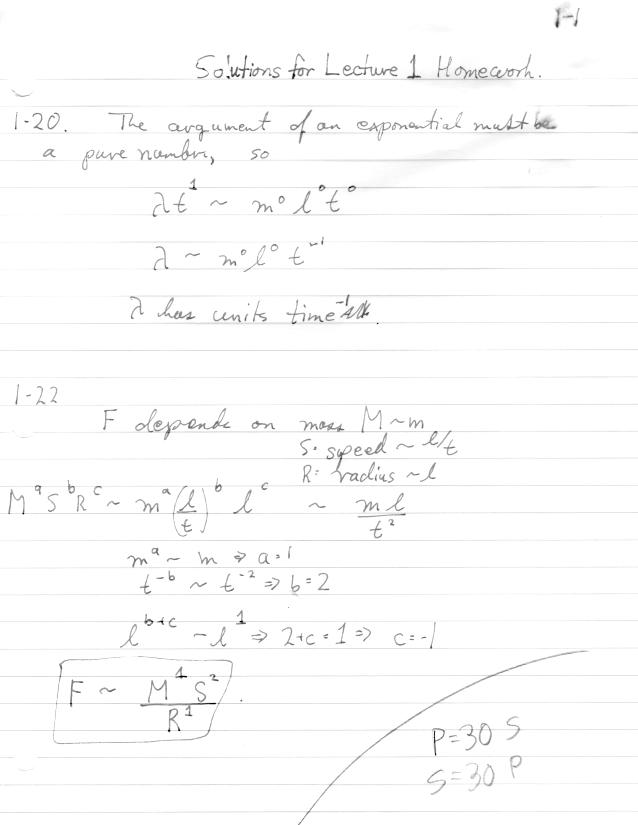 1-1
Solutions for Lecture 1 Homework.
1-20. The argument of an exponential must be
a pure number, so
λt¹ ~ m⁰ l⁰ t⁰
λ ~ m⁰ l⁰ t⁻¹
λ has units time⁻¹.
1-22
F depends on mass M~m
S: speed ~ l/t
R: radius ~ l
MᵃSᵇRᶜ ~ mᵃ(l/t)ᵇ lᶜ ~ ml/t²
mᵃ ~ m ⇒ a=1
t⁻ᵇ ~ t⁻² ⇒ b=2
lᵇ⁺ᶜ ~ l¹ ⇒ 2+c=1 ⇒ c=-1
F ~ M¹S²/R¹.
P=30 S
S=30 P